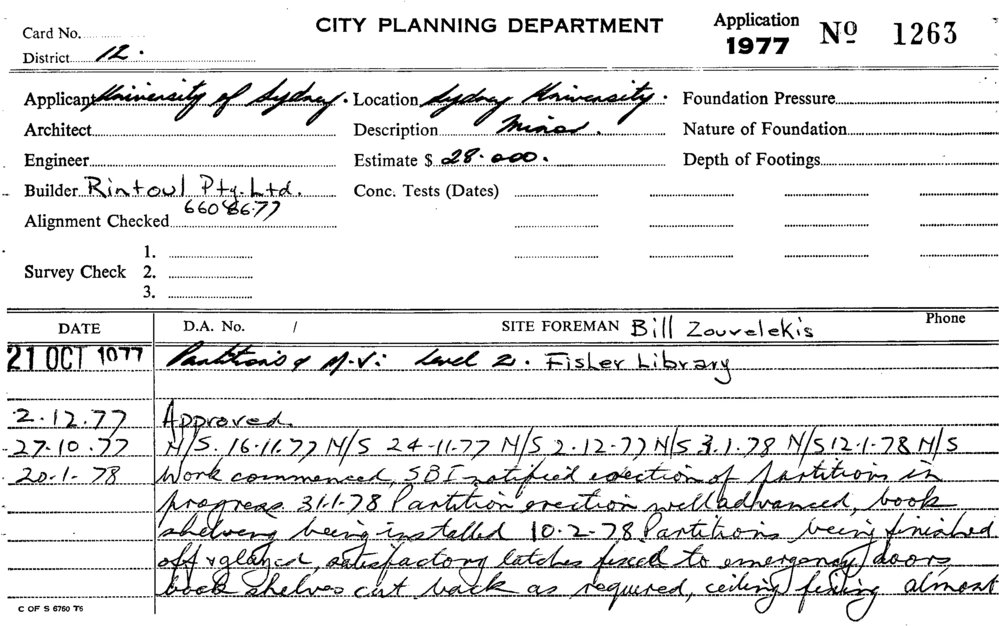 Card No.
CITY PLANNING DEPARTMENT
Application 1977 Nº 1263
District 12.
Applicant University of Sydney. Location Sydney University. Foundation Pressure
Architect Description Minor. Nature of Foundation
Engineer Estimate $ 28.000. Depth of Footings
Builder Rintoul Pty. Ltd. Conc. Tests (Dates)
660 8677
Alignment Checked
1.
Survey Check 2.
3.
DATE D.A. No. / SITE FOREMAN Bill Zouvelekis Phone
21 OCT 1977 Partitions & M.V. Level 2. Fisher Library
2.12.77 Approved.
27.10.77 N/S. 16-11.77 N/S 24-11.77 N/S 2-12-77 N/S 3.1.78 N/S 12-1-78 N/S
20.1.78 Work commenced, SBI notified erection of partition in
progress 31.1.78 Partition erection well advanced, book
shelving being installed 10-2-78 Partitions being finished
off & glazed, satisfactory latches fixed to emergency doors
book shelves cut back as required, ceiling fixing almost
C OF S 6760 76